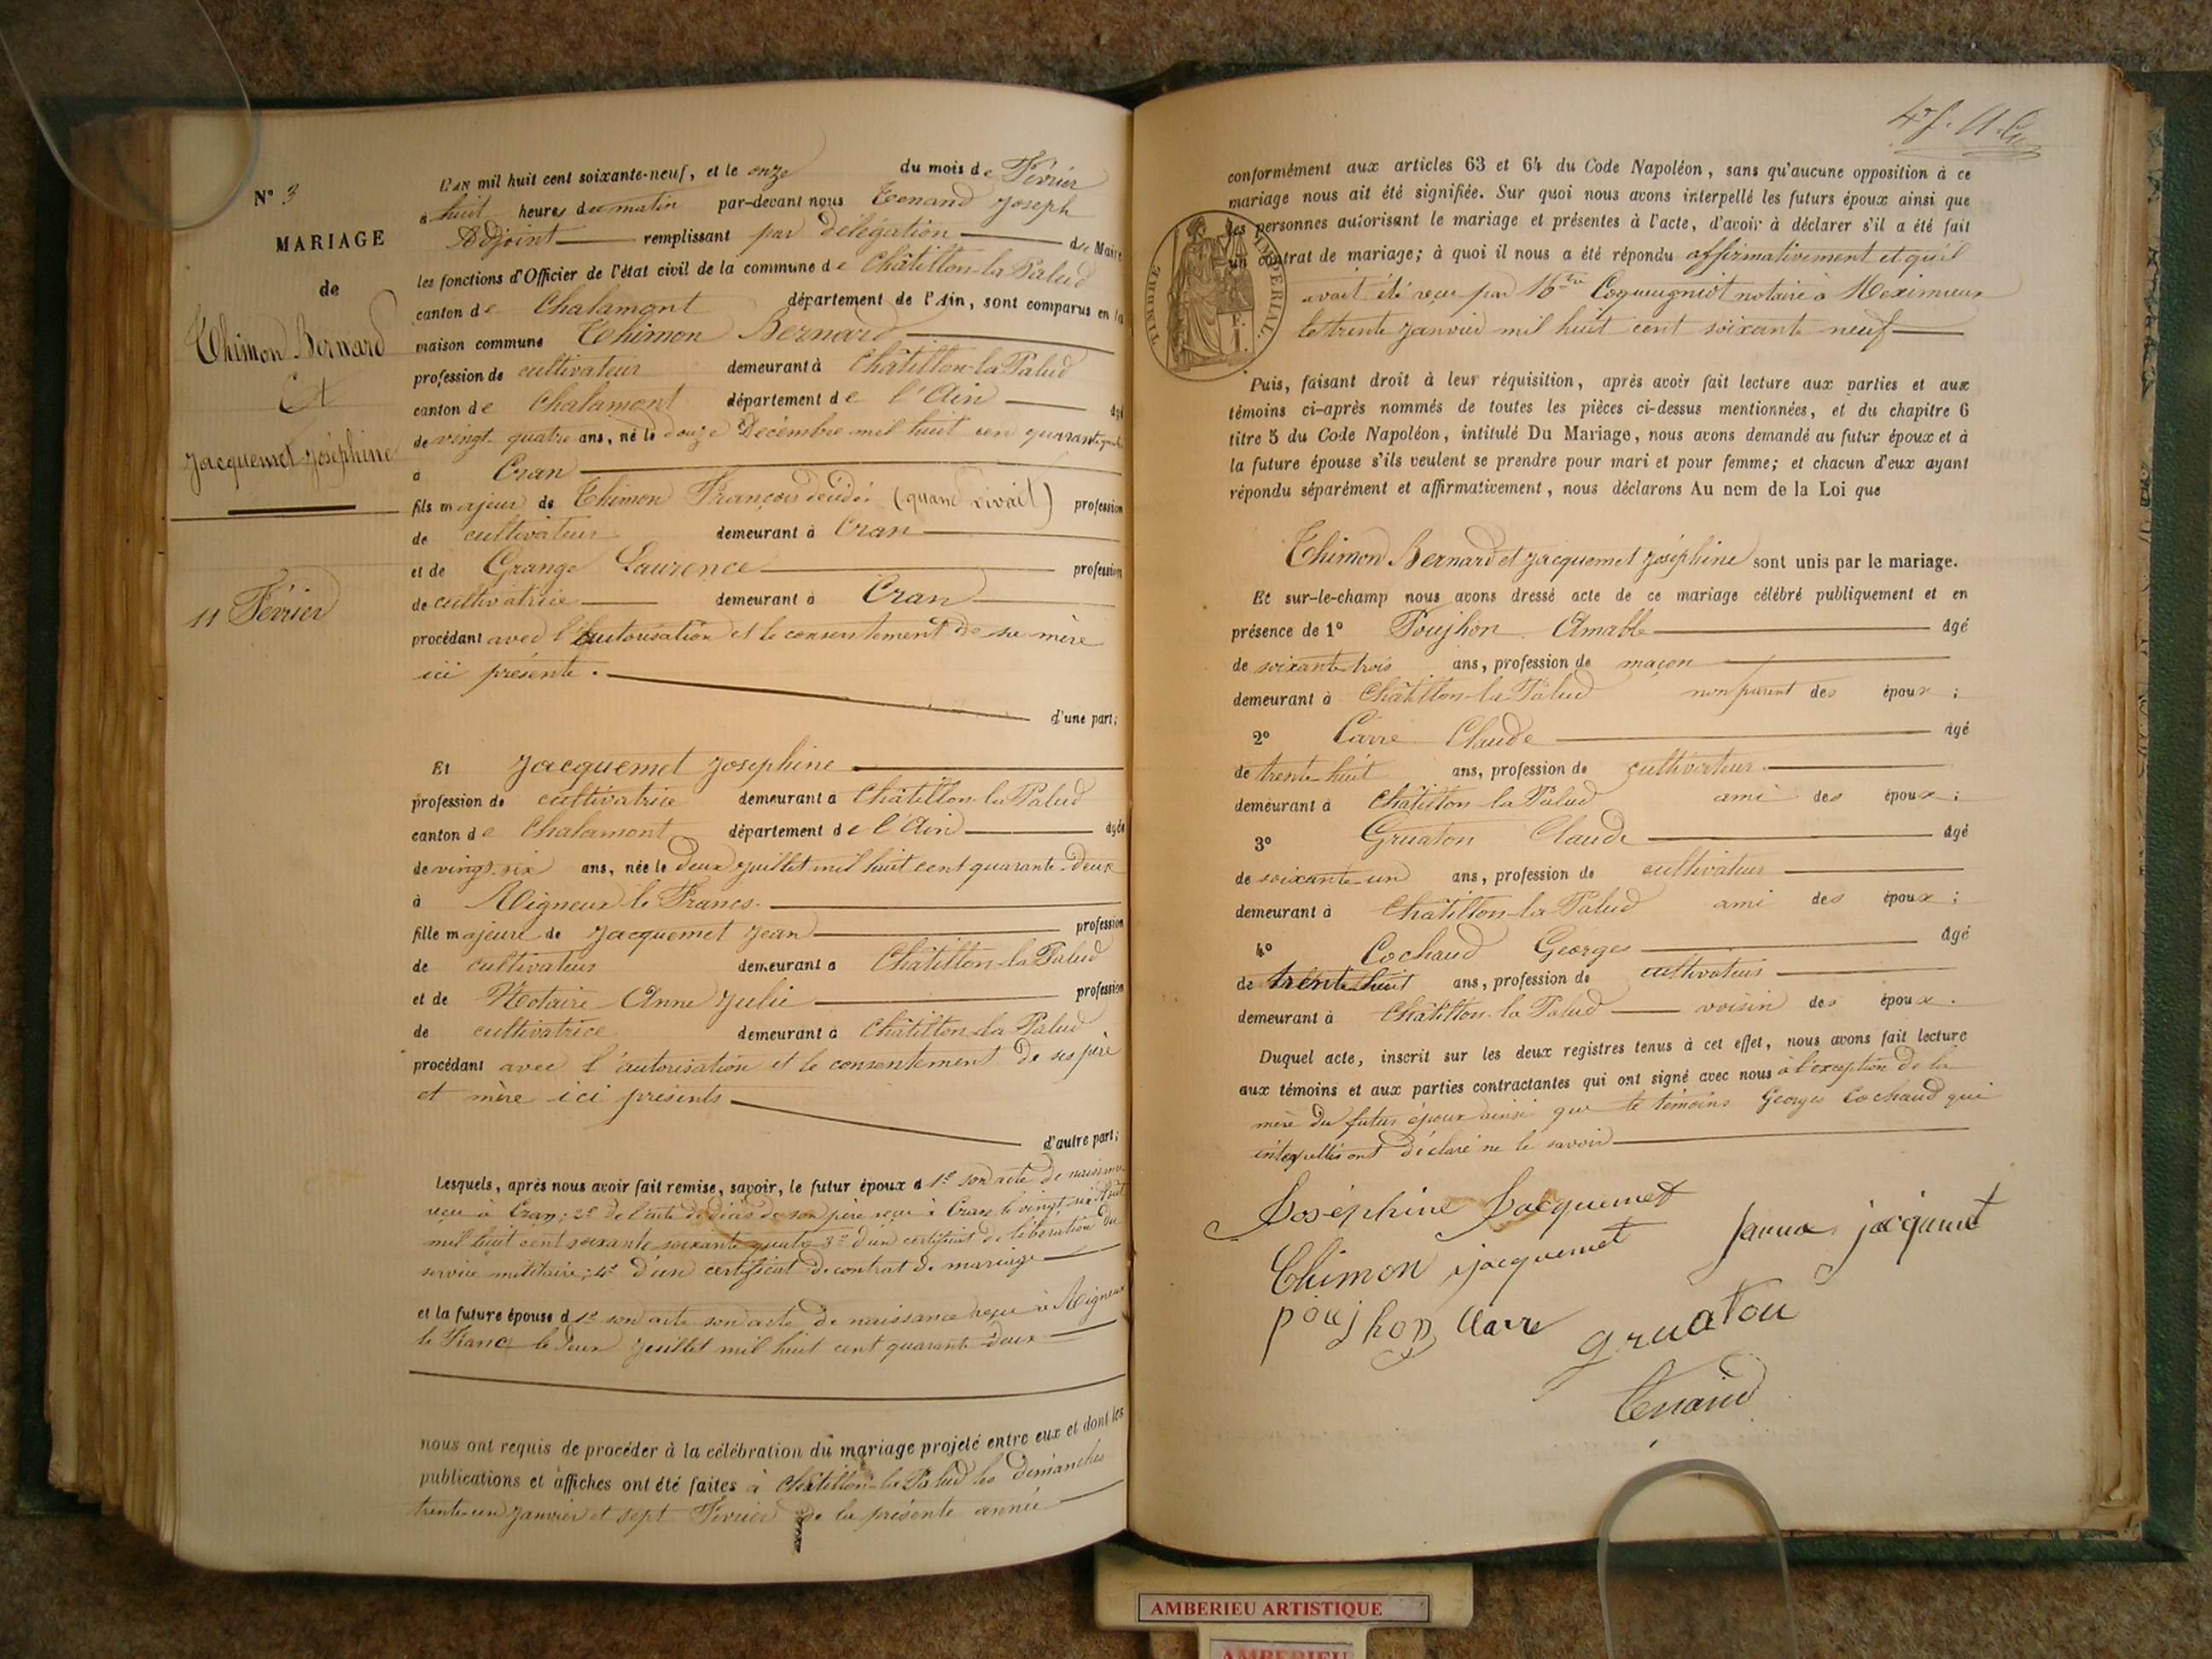 N° 3
MARIAGE
de
Thimon Bernard
Et
Jacquemet Joséphine
11 Février
L'AN mil huit cent soixante-neuf, et le onze du mois de Février
à huit heures du matin par-devant nous Tenand Joseph
Adjoint remplissant par délégation de Maire
les fonctions d'Officier de l'état civil de la commune de Châtillon-la Palud
canton de Chalamont département de l'Ain, sont comparus en la
maison commune Thimon Bernard
profession de cultivateur demeurant à Châtillon-la Palud
canton de Chalamont département de l'Ain âgé
de vingt-quatre ans, né le douze Décembre mil huit cent quarante quatre
à Cran
fils majeur de Thimon François décédé (quand vivait) profession
de cultivateur demeurant à Cran
et de Grange Laurence profession
de cultivatrice demeurant à Cran
procédant avec l'autorisation et le consentement de sa mère
ici présente.
d'une part;
Et Jacquemet Josephine
profession de cultivatrice demeurant à Châtillon-la Palud
canton de Chalamont département de l'Ain âgée
de vingt-six ans, née le deux Juillet mil huit cent quarante-deux
à Rigneux le Franc
fille majeure de Jacquemet Jean profession
de cultivateur demeurant à Châtillon-la Palud
et de Notaire Anne Julie profession
de cultivatrice demeurant à Châtillon-la Palud
procédant avec l'autorisation et le consentement de ses père
et mère ici présents
d'autre part;
Lesquels, après nous avoir fait remise, savoir, le futur époux d 1° son acte de naissance
reçu à Cran; 2° de l'acte de décès de son père reçu à Cran le vingt-six
mil huit cent soixante soixante quatre 3° d'un certificat de libération du
service militaire; 4° d'un certificat de contrat de mariage
et la future épouse d 1° son acte son acte de naissance reçu à Rigneux
le Franc le deux Juillet mil huit cent quarante-deux
nous ont requis de procéder à la célébration du mariage projeté entre eux et dont les
publications et affiches ont été faites à Châtillon-la Palud les dimanches
trente-un Janvier et sept Février de la présente année
conformément aux articles 63 et 64 du Code Napoléon, sans qu'aucune opposition à ce
mariage nous ait été signifiée. Sur quoi nous avons interpellé les futurs époux ainsi que
les personnes autorisant le mariage et présentes à l'acte, d'avoir à déclarer s'il a été fait
un contrat de mariage; à quoi il nous a été répondu affirmativement et qu'il
avait été reçu par Coqueugniot notaire à Meximieux
le trente Janvier mil huit cent soixante neuf
TIMBRE IMPÉRIAL
Puis, faisant droit à leur réquisition, après avoir fait lecture aux parties et aux
témoins ci-après nommés de toutes les pièces ci-dessus mentionnées, et du chapitre 6
titre 5 du Code Napoléon, intitulé Du Mariage, nous avons demandé au futur époux et à
la future épouse s'ils veulent se prendre pour mari et pour femme; et chacun d'eux ayant
répondu séparément et affirmativement, nous déclarons Au nom de la Loi que
Thimon Bernard et Jacquemet Joséphine sont unis par le mariage.
Et sur-le-champ nous avons dressé acte de ce mariage célébré publiquement et en
présence de 1° Poujhon Amable âgé
de soixante trois ans, profession de maçon
demeurant à Châtillon-la Palud non parent des époux;
2° Carre Claude âgé
de trente huit ans, profession de cultivateur
demeurant à Châtillon-la Palud ami des époux;
3° Gruaton Claude âgé
de soixante-un ans, profession de cultivateur
demeurant à Châtillon-la Palud ami des époux;
4° Cochaud Georges âgé
de trente huit ans, profession de cultivateur
demeurant à Châtillon-la Palud voisin des époux.
Duquel acte, inscrit sur les deux registres tenus à cet effet, nous avons fait lecture
aux témoins et aux parties contractantes qui ont signé avec nous à l'exception de la
mère du futur époux ainsi que le témoins Georges Cochaud qui
interpellés ont déclaré ne le savoir
Joséphine Jacquemet
Thimon jacquemet jacquemet
poujhon Carre gruaton
Tenand
AMBERIEU ARTISTIQUE
AMBERIEU